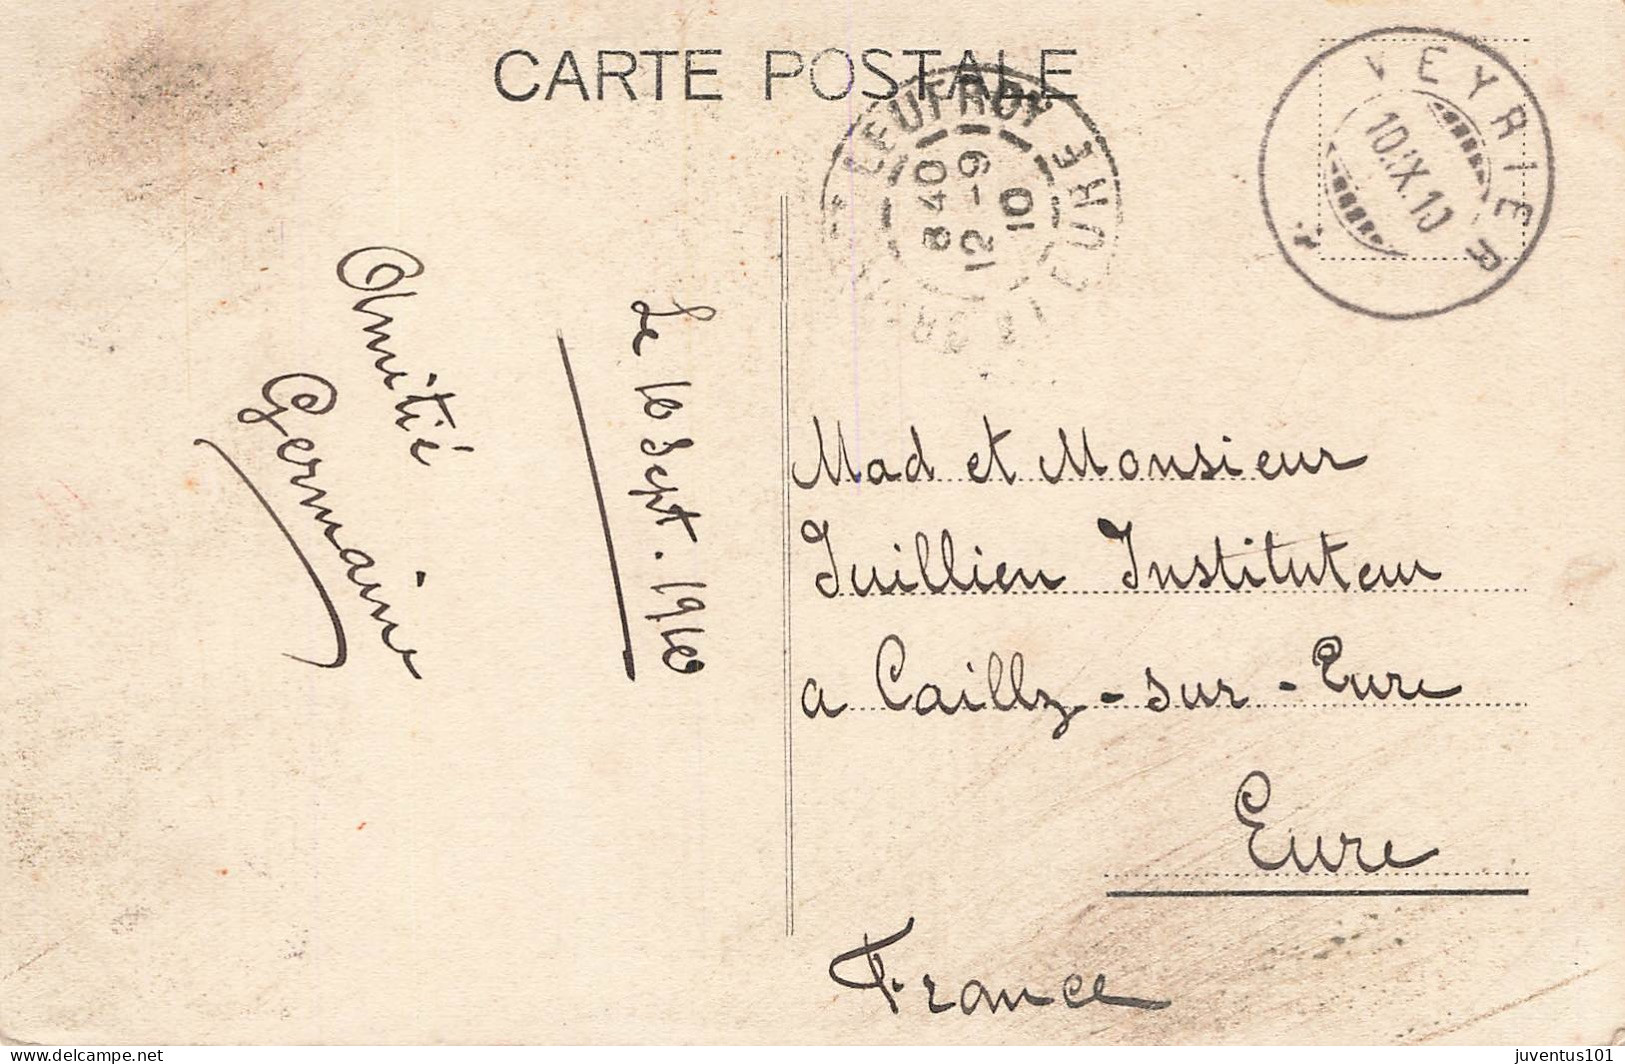 CARTE POSTALE
LEUFROY EURE
8 40
12 - 9
10
VEYRIER
10.IX.10
Amitié
Germaine
Le 10 Sept. 1910
Mad et Monsieur
Juillien Instituteur
a Cailly-sur-Eure
Eure
France
juventus101